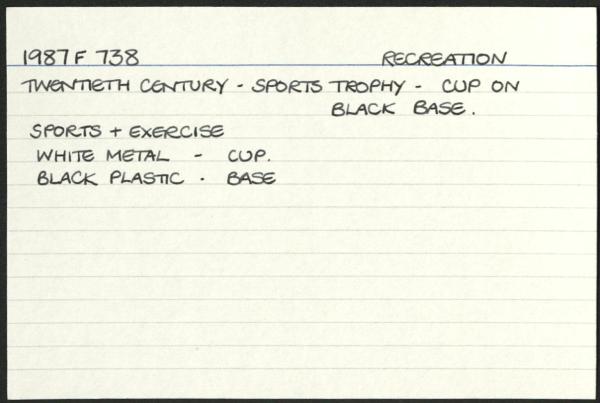 1987 F 738 RECREATION
TWENTIETH CENTURY - SPORTS TROPHY - CUP ON
BLACK BASE.
SPORTS + EXERCISE
WHITE METAL - CUP.
BLACK PLASTIC . BASE